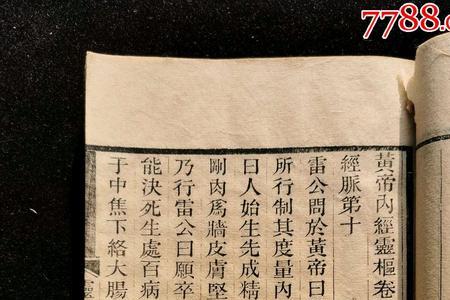 7788.c
黃帝內經靈樞卷
經脈第十
雷公問於黃帝曰
所行制其度量內
曰人始生先成精
剛肉爲牆皮膚堅
乃行雷公曰願卒
能決死生處百病
于中焦下絡大腸
靈